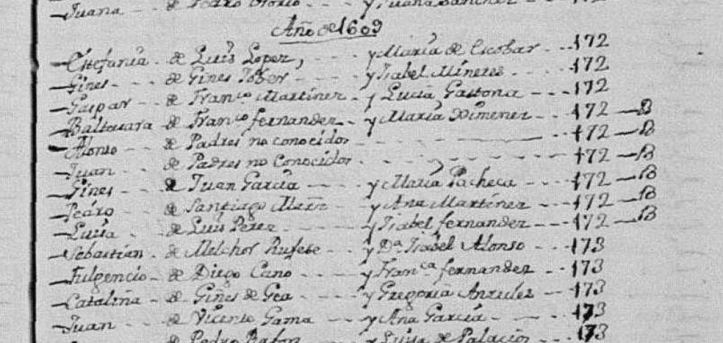 Juana - de Pedro Osorio - y Juana Sanchez
Año de 1609
Estefania - de Luis Lopez, - - - y Maria de Escobar - - 172
Gines - - de Gines Tober - - - y Isabel Mineres - - - 172
Gaspar - - de Franco Martinez - y Lucia Gastona - - - 172
Baltasara - de Franco fernandez - - y Maria Ximenez - - 172 - B
Alonso - - de Padres no conocidos - - - 172 - B
Juan - - de Padres no Conocidos - - - 172 - B
Gines - - de Juan Garcia - - - y Maria Pacheca - - - 172 - B
Pedro - - de Santiago Mrnz - - y Ana Martinez - - - 172 - B
Luisa - - de Luis Perez - - - y Isabel fernandez - - 172 - B
Sebastian - de Melchor Rufete - - y Da. Isabel Alonso - - 173
Fulgencio - de Diego Cano - - - y Franca fernandez - - 173
Catalina - de Gines de Gea - - y Gregoria - - 173
Juan - - de Vicente Gama - - y Ana Garcia - - - 173
de Pedro - - y Luisa de Palacios - - 173